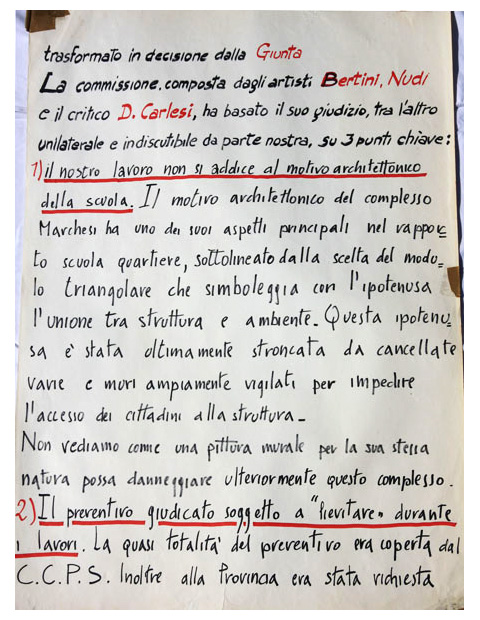 trasformato in decisione dalla Giunta
La commissione, composta dagli artisti Bertini, Nudi
e il critico D. Carlesi, ha basato il suo giudizio, tra l'altro
unilaterale e indiscutibile da parte nostra, su 3 punti chiave:
1) il nostro lavoro non si addice al motivo architettonico
della scuola. Il motivo architettonico del complesso
Marchesi ha uno dei suoi aspetti principali nel rappor=
to scuola quartiere, sottolineato dalla scelta del modu=
lo triangolare che simboleggia con l'ipotenusa
l'unione tra struttura e ambiente. Questa ipotenu=
sa è stata ultimamente stroncata da cancellate
varie e muri ampiamente vigilati per impedire
l'accesso dei cittadini alla struttura_
Non vediamo come una pittura murale per la sua stessa
natura possa danneggiare ulteriormente questo complesso.
2) Il preventivo giudicato soggetto a "lievitare" durante
i lavori. La quasi totalità del preventivo era coperta dal
C.C.P.S. Inoltre alla Provincia era stata richiesta